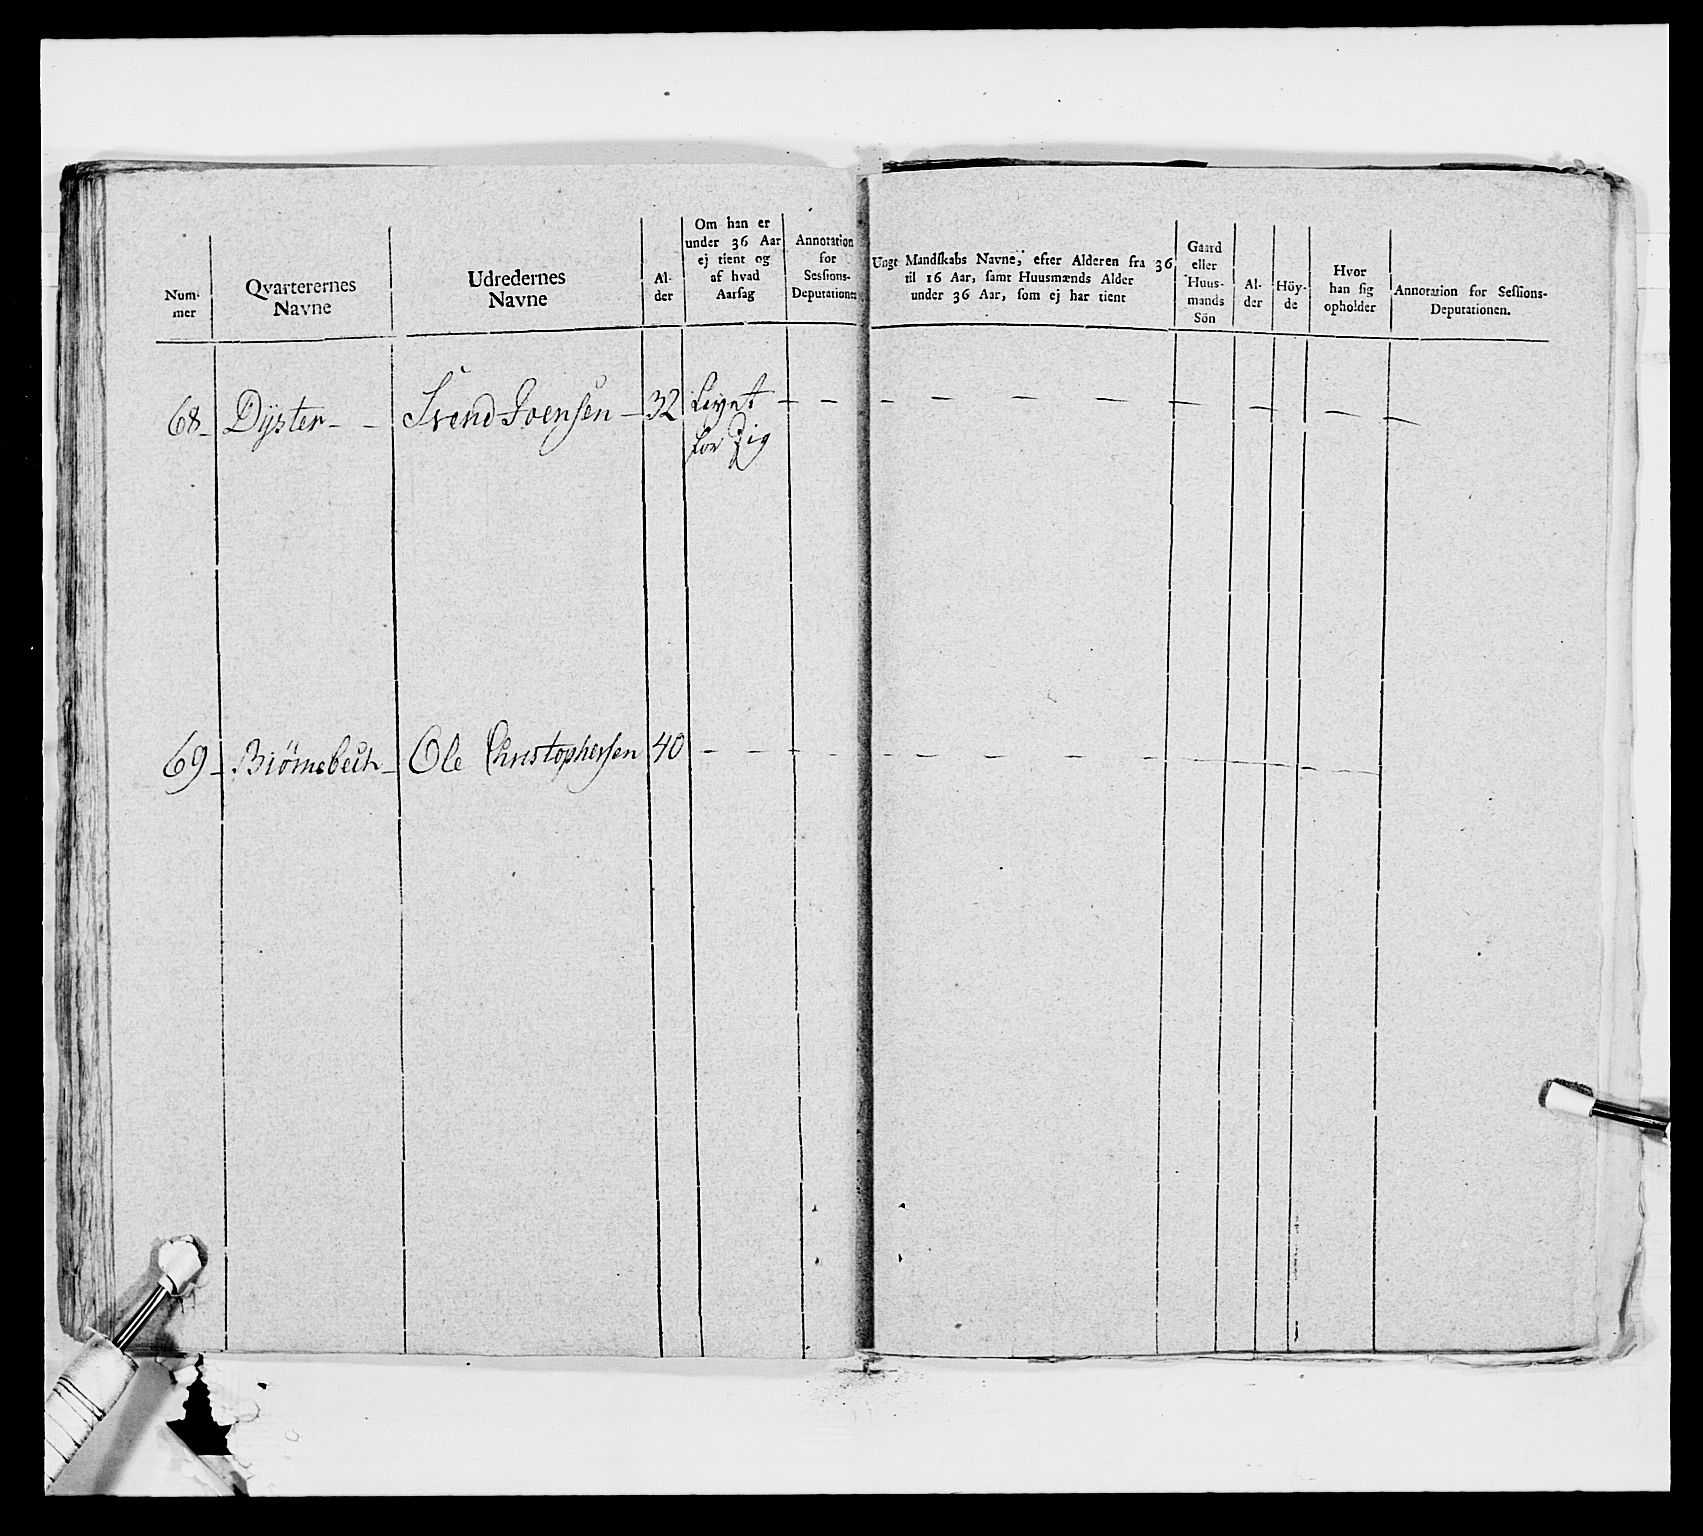 Num-
mer
Qvarterernes
Navne
Udredernes
Navne
Al-
der
Om han er
under 36 Aar
ej tient og
af hvad
Aarsag
Annotation
for
Sessions-
Deputationen
Ungt Mandskabs Navne, efter Alderen fra 36
til 16 Aar, samt Huusmænds Alder
under 36 Aar, som ej har tient
Gaard
eller
Huus-
mands
Sön
Al-
der
Höy-
de
Hvor
han sig
opholder
Annotation for Sessions-
Deputationen.
68 Dyster Svend Joensen 32
for Zig
69 Biørnebech Ole Christophersen 40